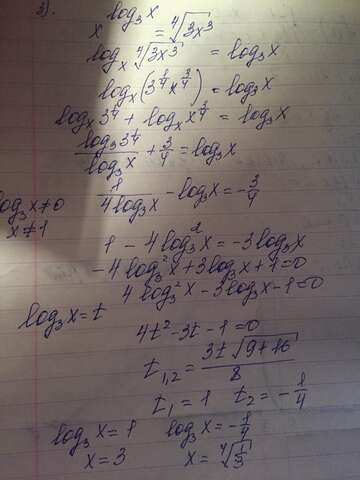 3). x^{log₃x} = ⁴√(3x³)
logₓ ⁴√(3x³) = log₃x
logₓ(3^{1/4} x^{3/4}) = log₃x
logₓ3^{1/4} + logₓx^{3/4} = log₃x
log₃3^{1/4}/log₃x + 3/4 = log₃x
log₃x≠0
x≠1
1/(4log₃x) - log₃x = -3/4
1 - 4log₃²x = -3log₃x
-4log₃²x + 3log₃x + 1 = 0
4log₃²x - 3log₃x - 1 = 0
log₃x = t
4t² - 3t - 1 = 0
t₁,₂ = (3±√(9+16))/8
t₁ = 1 t₂ = -1/4
log₃x = 1 log₃x = -1/4
x = 3 x = ⁴√(1/3)